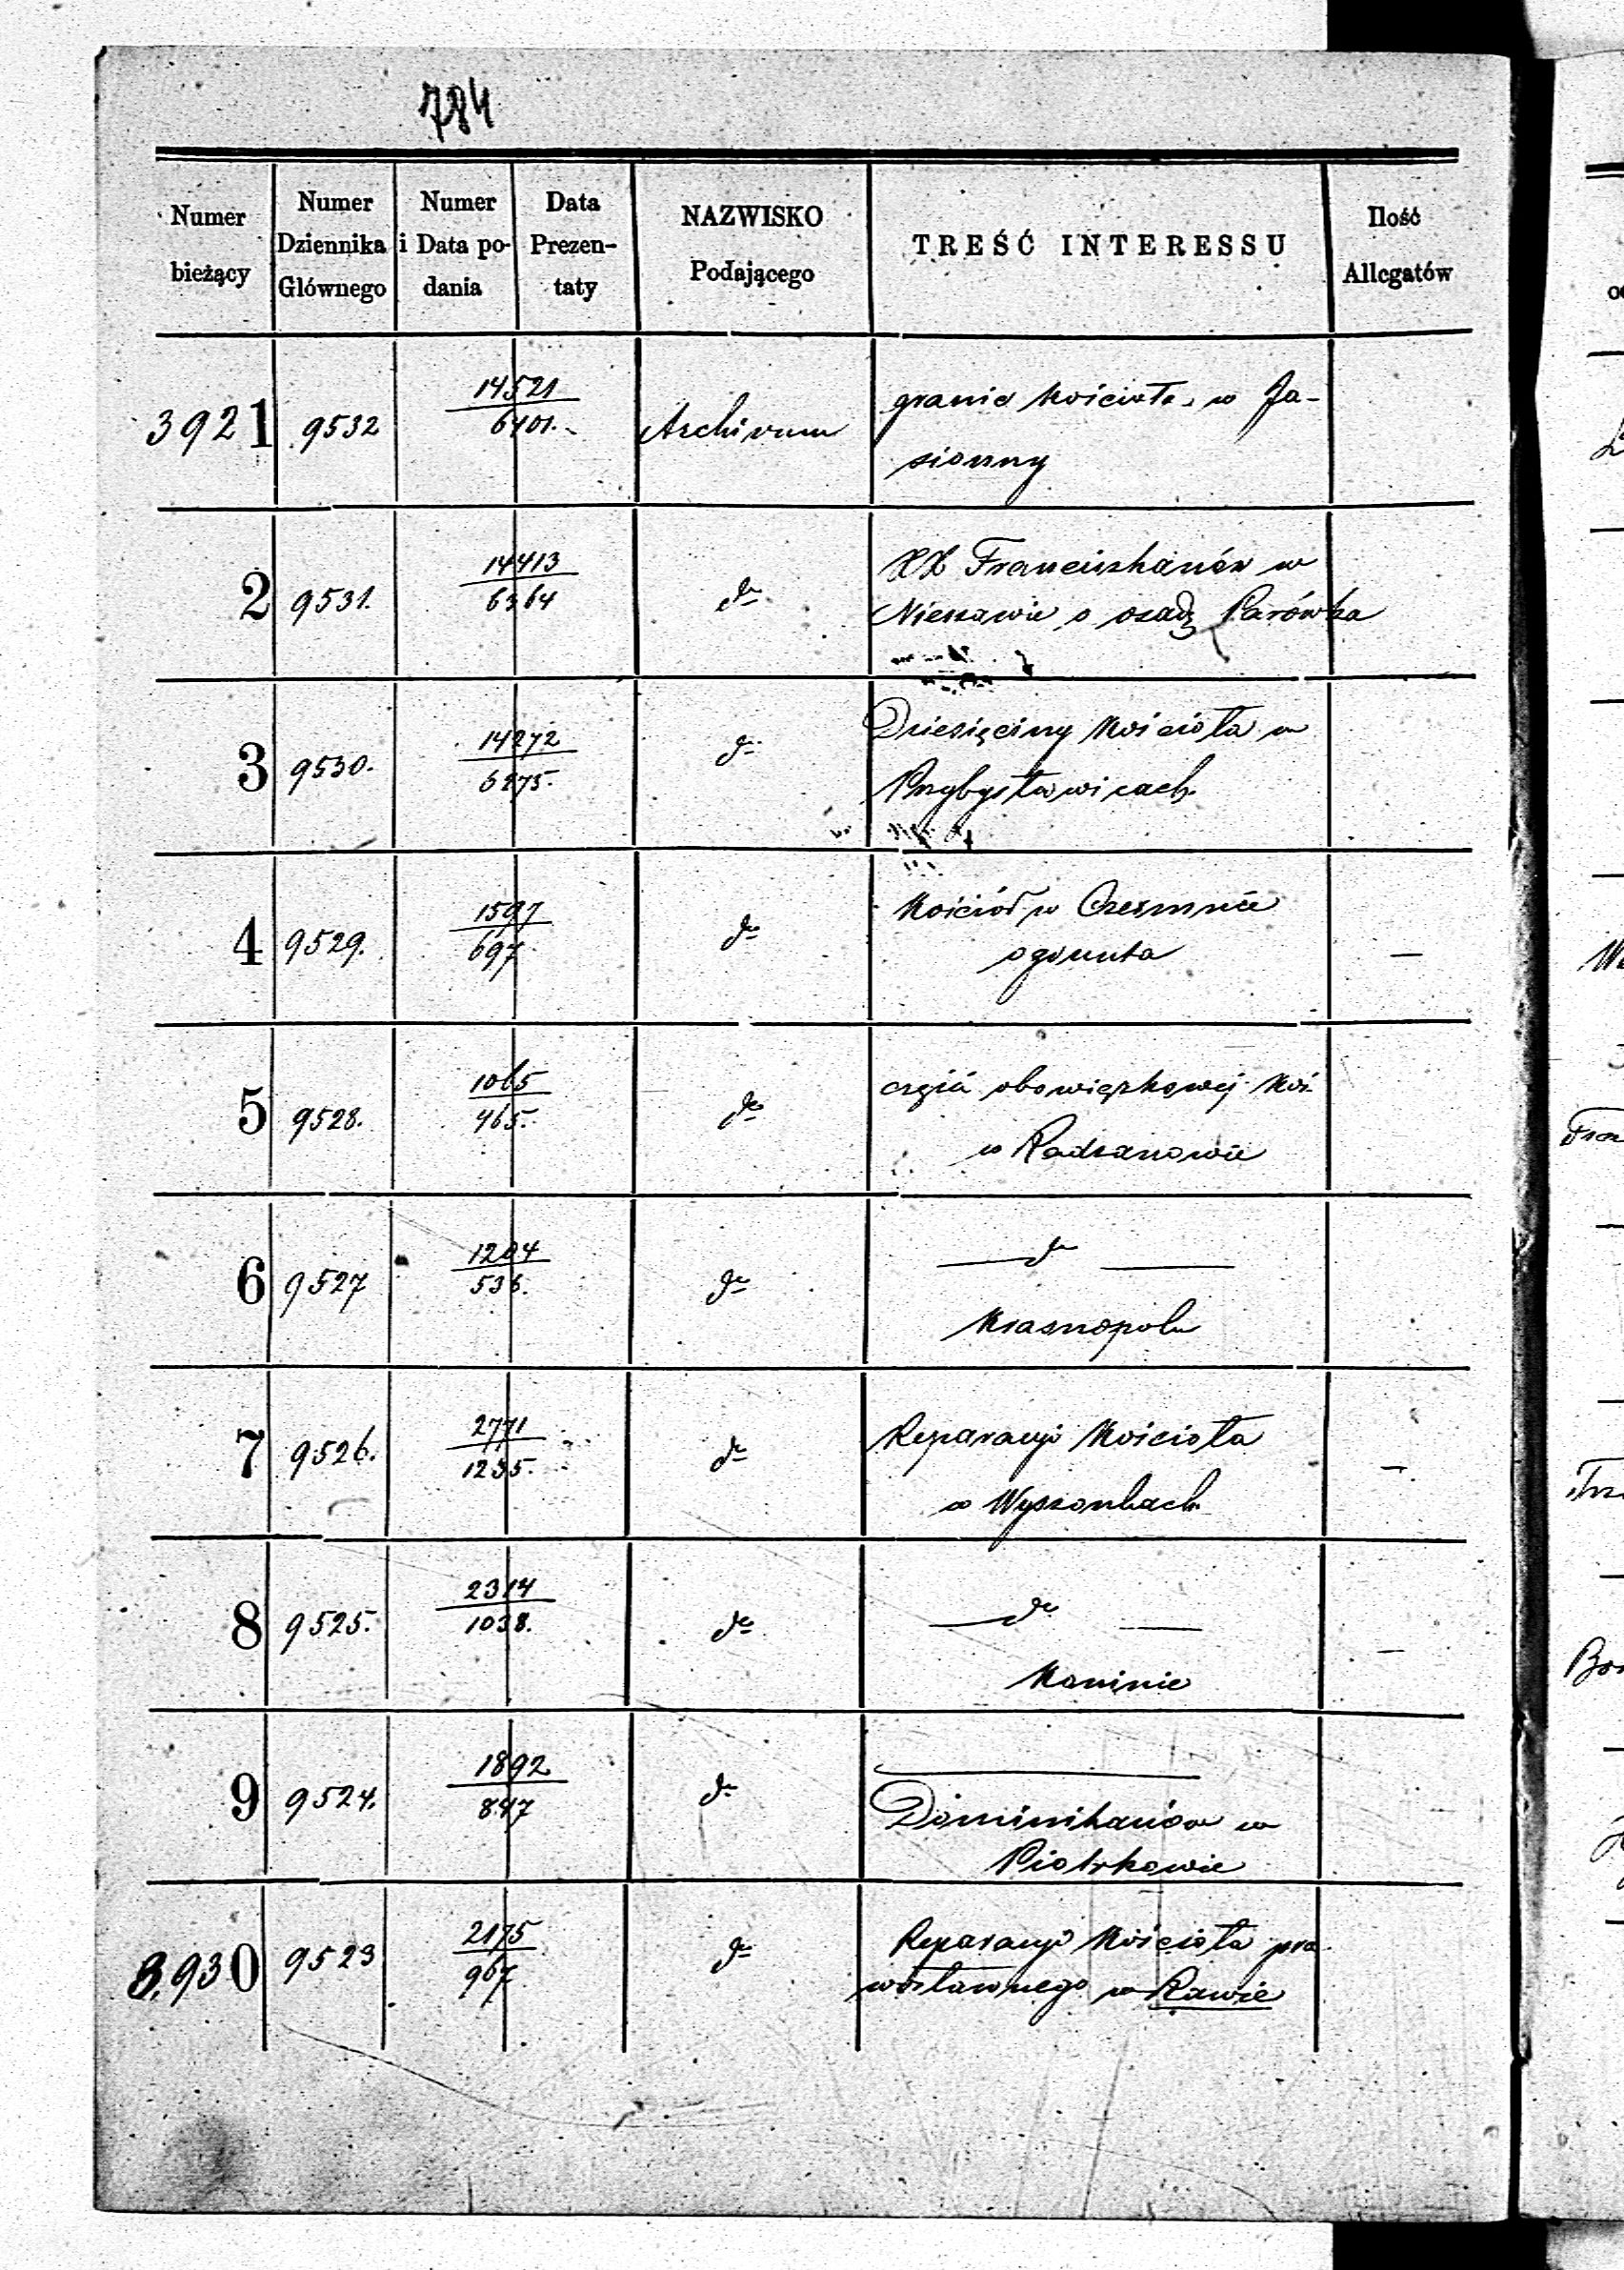 784
Numer bieżący | Numer Dziennika Głównego | Numer i Data podania | Data Prezentaty | NAZWISKO Podającego | TREŚĆ INTERESSU | Ilość Allegatów
3921 | 9532 | 14521 / 6401. | Archivum | granic Kościoła w Ja-
sionny
2 | 9531. | 14413 / 6364 | do | XX Franciszkanów w
Nieszawie o osadę Parówka
3 | 9530. | 14272 / 6275. | do | Dziesięciny Kościoła w
Przybysławicach
4 | 9529. | 1597 / 697 | do | Kościół w Czermnie
o grunta | —
5 | 9528. | 1065 / 465. | do | obowiązkowej Koś.
w Radzanowie
6 | 9527 | 1204 / 536. | do | — do —
Krasnopolu
7 | 9526. | 2771 / 1235. | do | Reparacyi Kościoła
w Wyszonkach | —
8 | 9525. | 2314 / 1038. | do | — do —
Koninie | —
9 | 9524. | 1892 / 847 | do | —
Dominikanów w
Piotrkowie
3.930 | 9523 | 2175 / 967 | do | Reparacyi Kościoła pra
wosławnego w Rawie